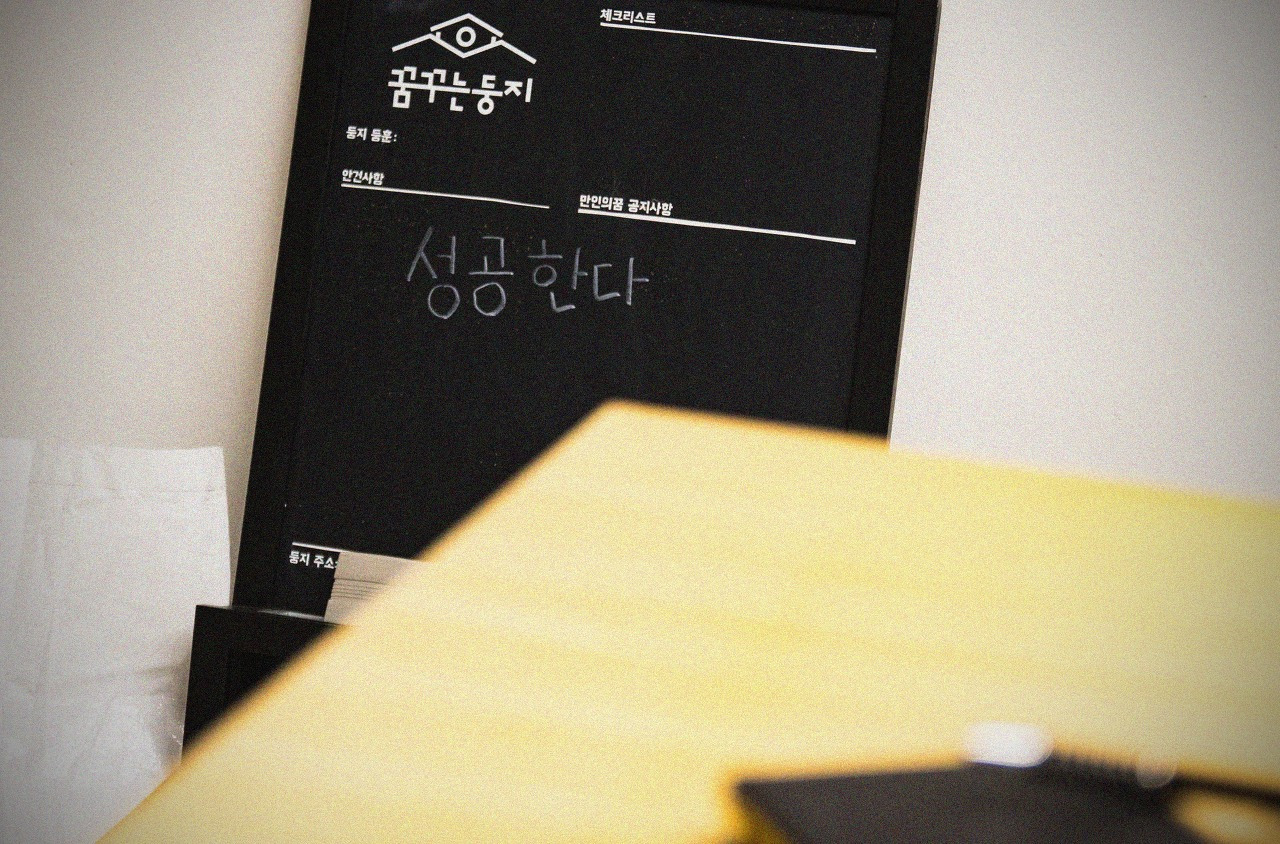 체크리스트
꿈꾸는둥지
둥지 등훈:
안건사항
만인의꿈 공지사항
성공한다
둥지 주소: